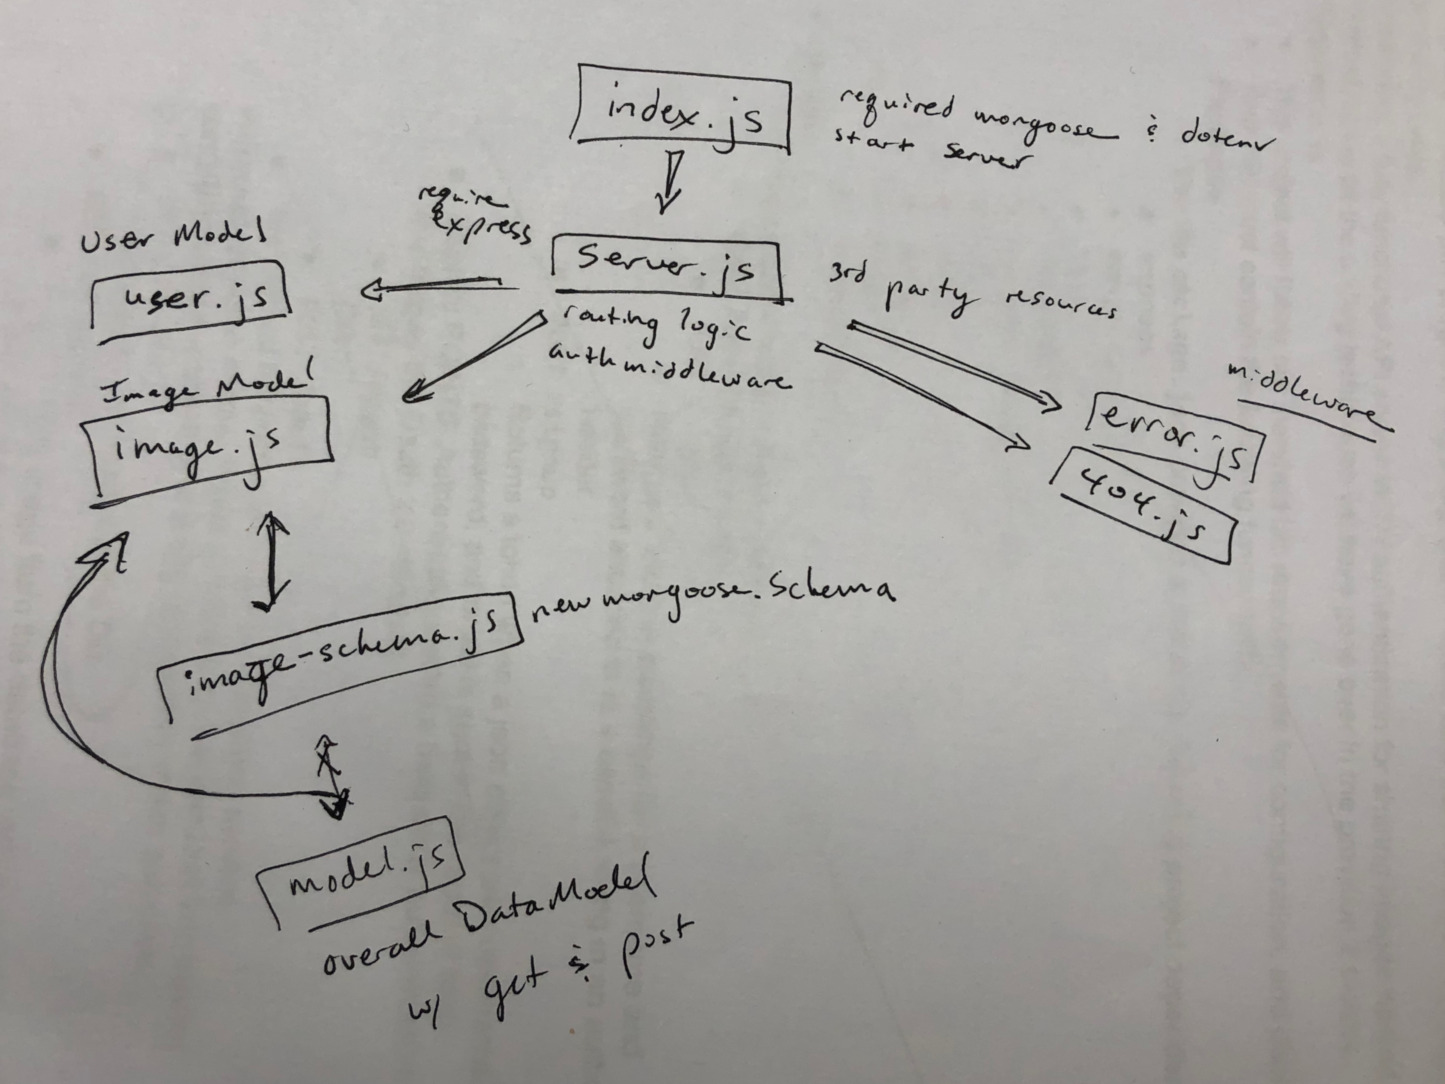 index.js
required mongoose & dotenv
start server
require
express
User Model
user.js
Server.js
3rd party resources
routing logic
auth middleware
Image Model
image.js
middleware
error.js
404.js
image-schema.js
new mongoose.Schema
model.js
overall DataModel
w/ get & post